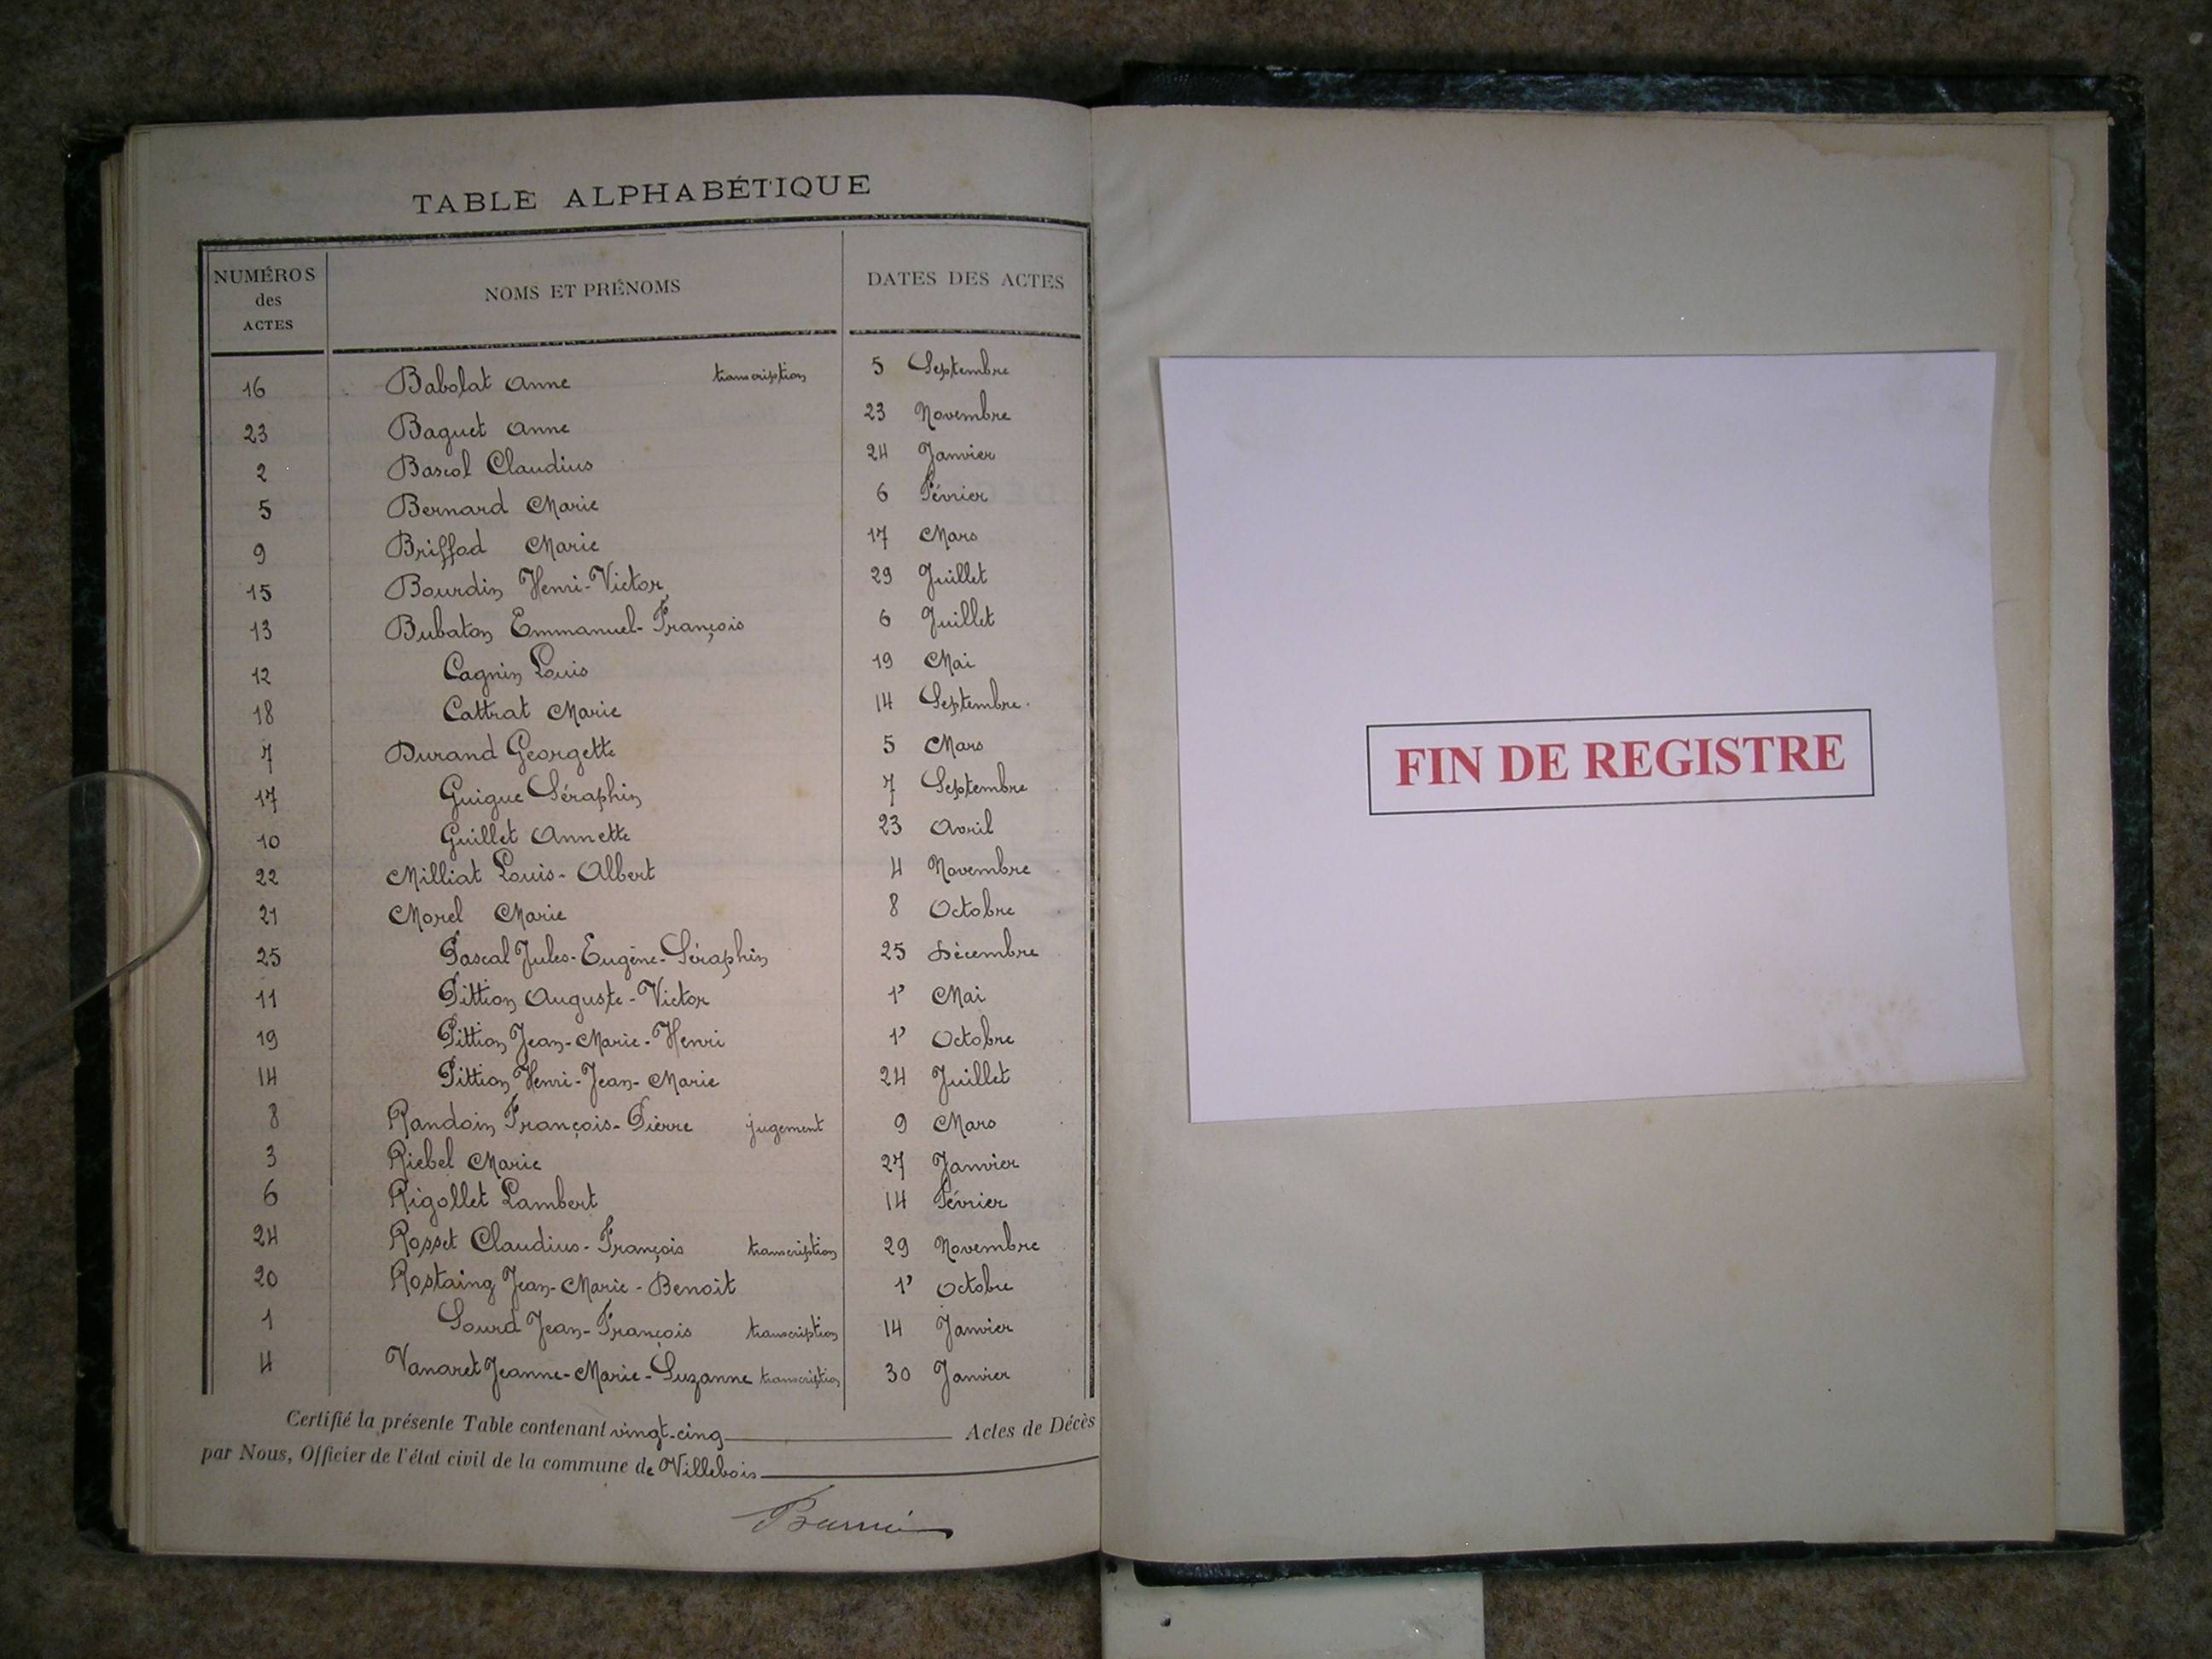 TABLE ALPHABÉTIQUE
NUMÉROS des ACTES NOMS ET PRÉNOMS DATES DES ACTES
16 Babolat Anne transcription 5 Septembre
23 Baguet Anne 23 Novembre
2 Bascol Claudius 24 Janvier
5 Bernard Marie 6 Février
9 Briffad Marie 17 Mars
15 Bourdin Henri-Victor 29 Juillet
13 Bubaton Emmanuel-François 6 Juillet
12 Cagnin Louis 19 Mai
18 Cattrat Marie 14 Septembre
7 Durand Georgette 5 Mars
17 Guigue Séraphin 7 Septembre
10 Guillet Annette 23 Avril
22 Milliat Louis-Albert 4 Novembre
21 Morel Marie 8 Octobre
25 Pascal Jules-Eugène-Séraphin 25 Décembre
11 Pittion Auguste-Victor 1' Mai
19 Pittion Jean-Marie-Henri 1' Octobre
14 Pittion Henri-Jean-Marie 24 Juillet
8 Randoin François-Pierre jugement 9 Mars
3 Riebel Marie 27 Janvier
6 Rigollet Lambert 14 Février
24 Rosset Claudius-François transcription 29 Novembre
20 Rostaing Jean-Marie-Benoit 1' Octobre
1 Sourd Jean-François transcription 14 Janvier
4 Vanaret Jeanne-Marie-Suzanne transcription 30 Janvier
Certifié la présente Table contenant vingt-cinq Actes de Décès
par Nous, Officier de l'état civil de la commune de Villebois
FIN DE REGISTRE